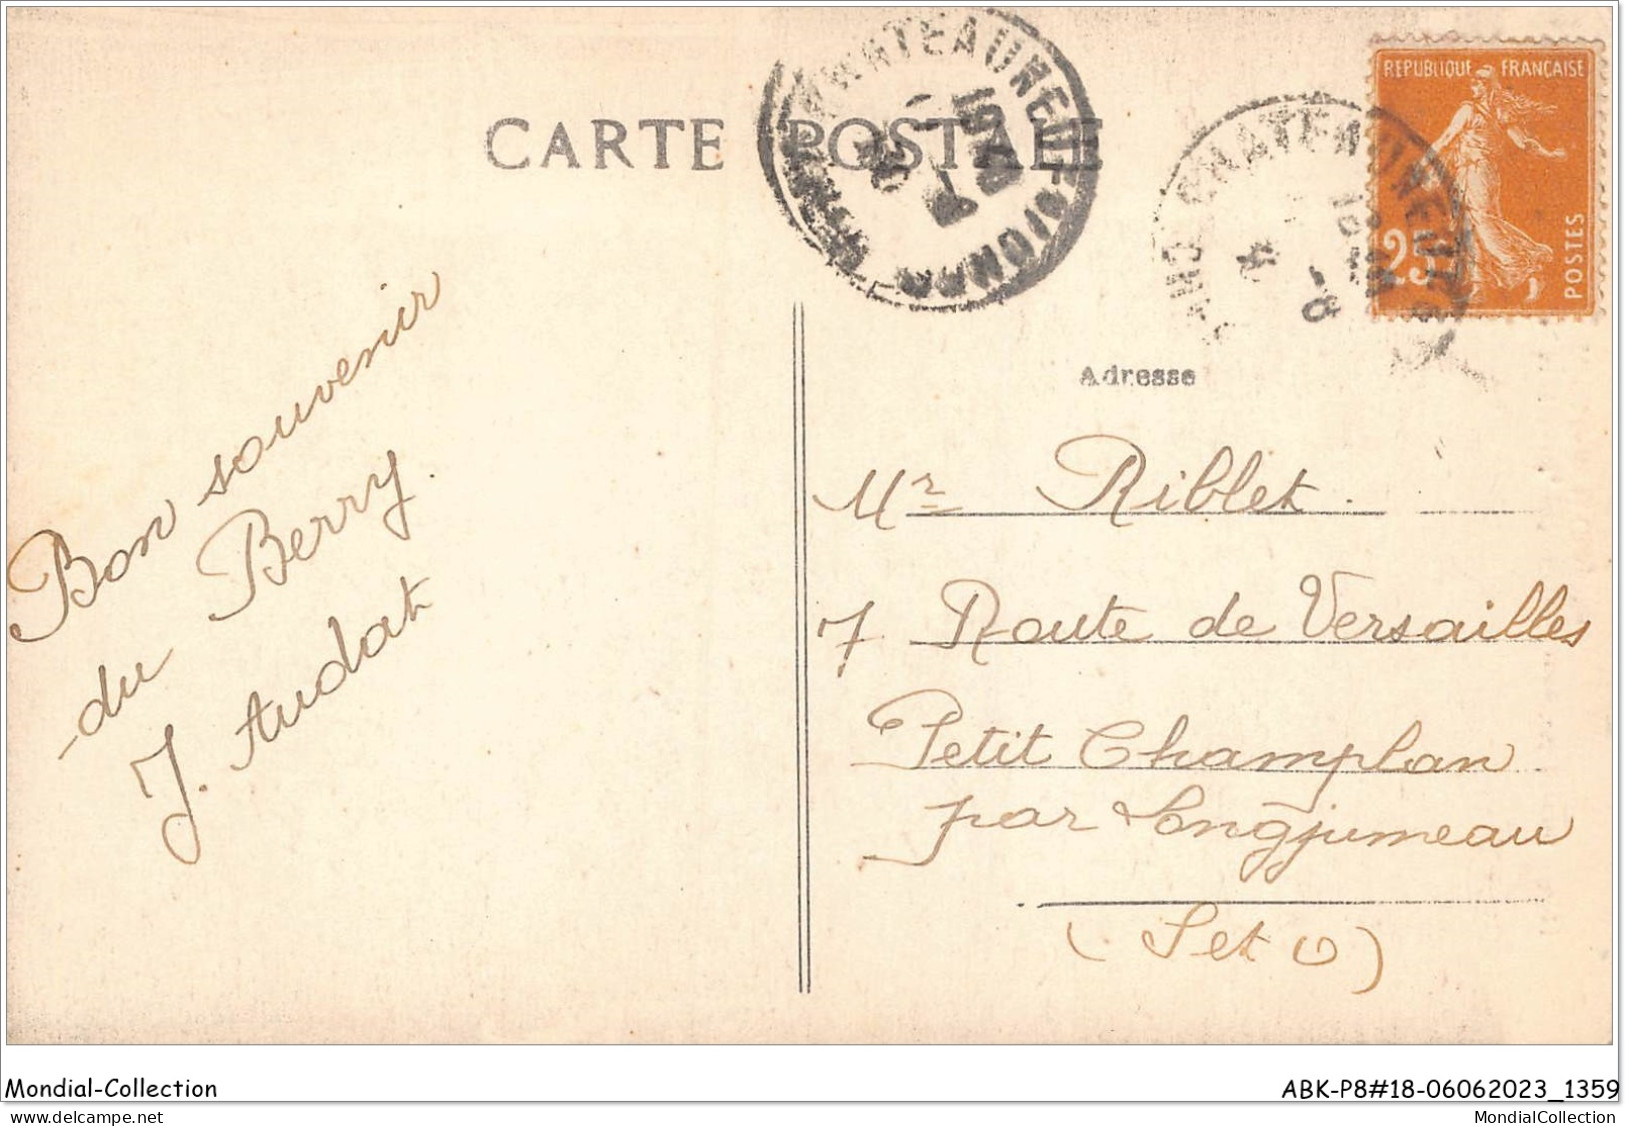 CARTE POSTALE
REPUBLIQUE FRANÇAISE
25
POSTES
CHATEAUNEUF
CHATEAUNEUF
Adresse
Bon souvenir
du Berry.
J. Audat
Mr Riblet.
7 Route de Versailles
Petit Champlan
par Longjumeau
(S et O)
Mondial-Collection
ABK-P8#18-06062023_1359
MondialCollection